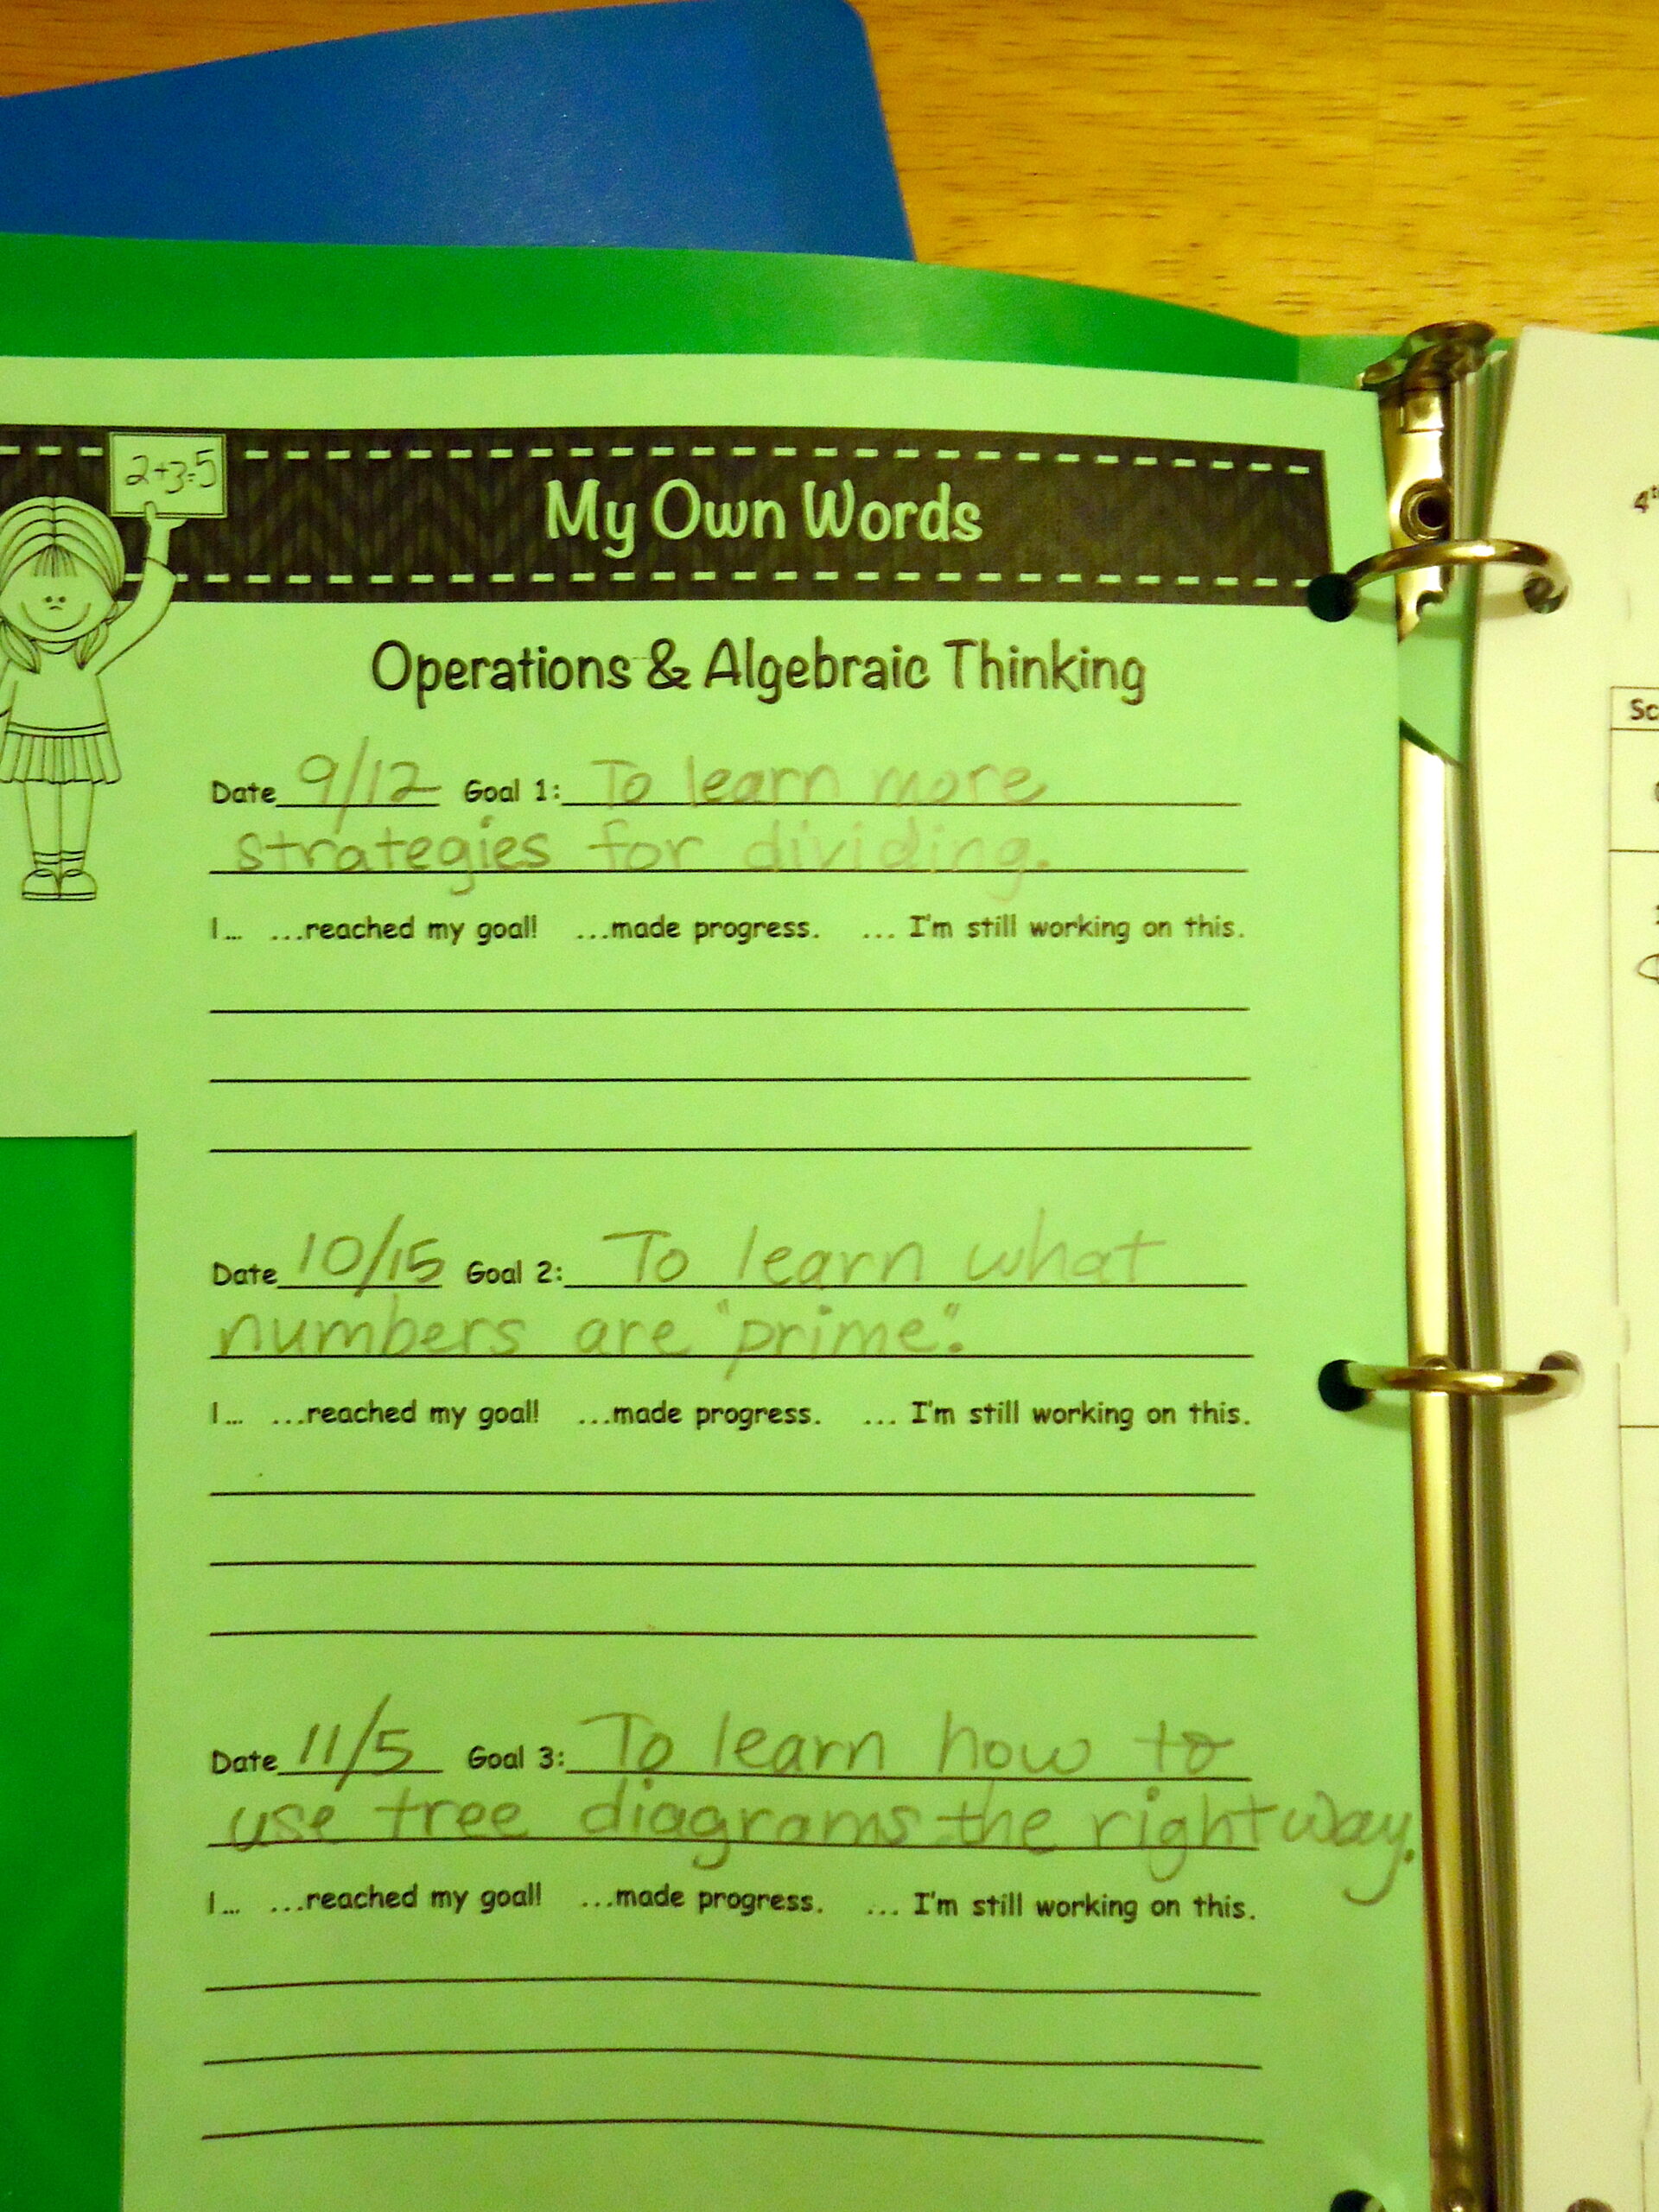 2+3=5
My Own Words
Operations & Algebraic Thinking
Date 9/12 Goal 1: To learn more
strategies for dividing.
I... ...reached my goal! ...made progress. ... I'm still working on this.
Date 10/15 Goal 2: To learn what
numbers are "prime".
I... ...reached my goal! ...made progress. ... I'm still working on this.
Date 11/5 Goal 3: To learn how to
use tree diagrams the right way.
I... ...reached my goal! ...made progress. ... I'm still working on this.